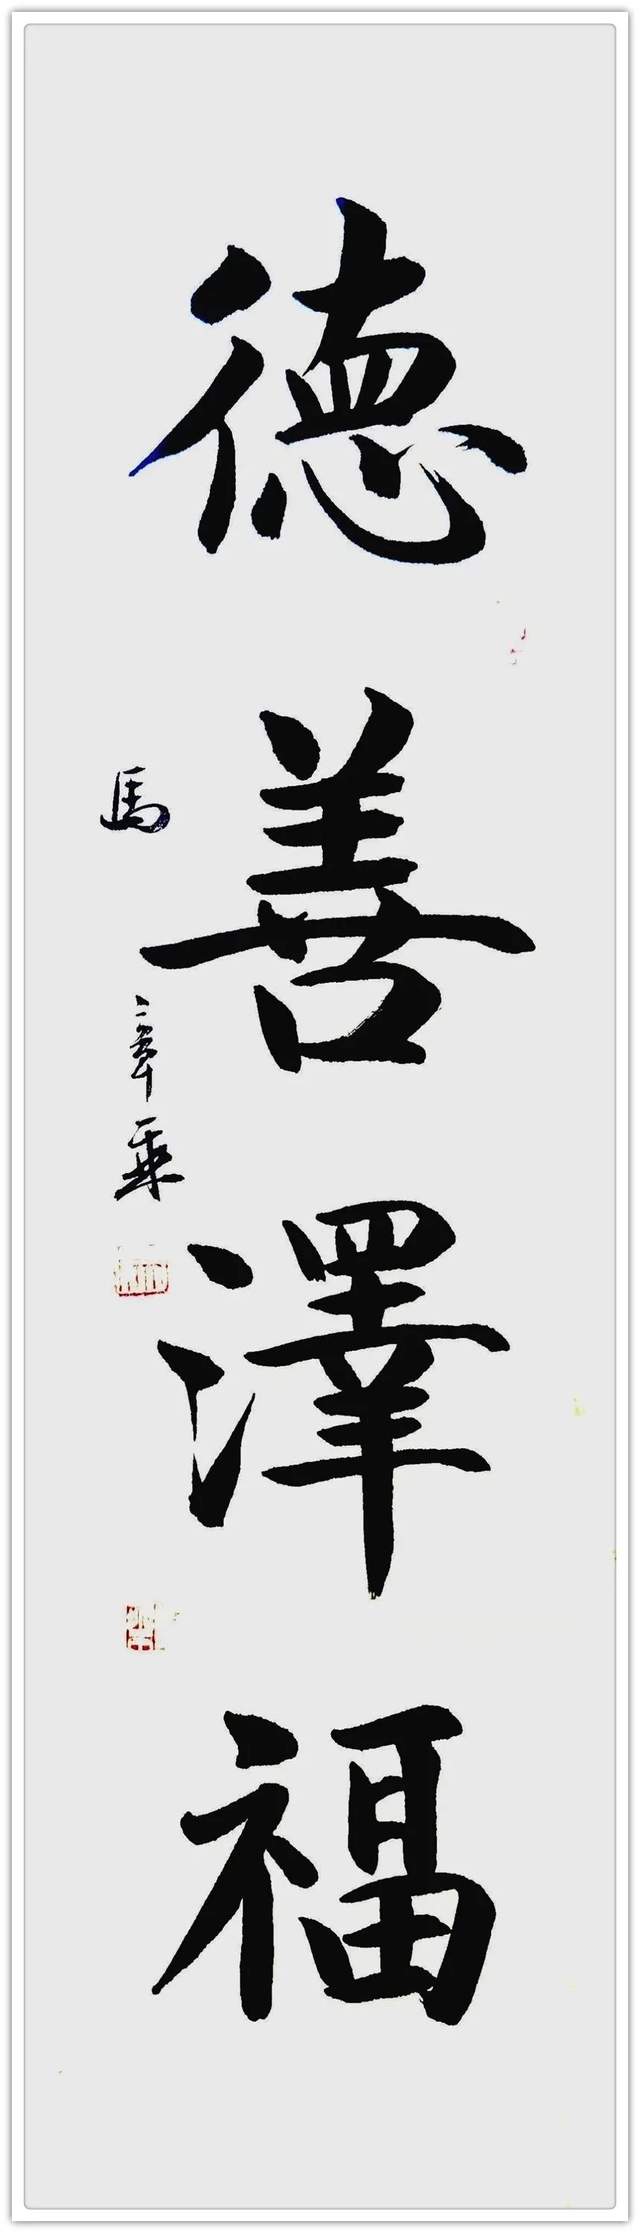 德善澤福
馬章乘